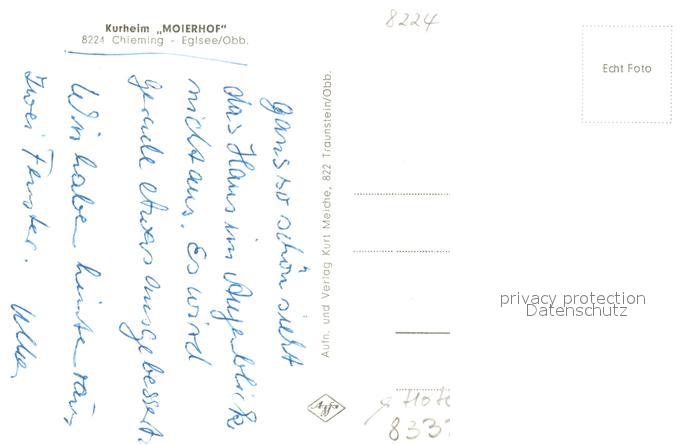 Kurheim „MOIERHOF“
8224 Chieming - Eglsee/Obb.
ganz so schön sieht
das Haus im Augenblick
nicht aus. Es wird
gerade etwas ausgebessert.
Wir haben hinten raus
zwei Fenster.
Aufn. und Verlag Kurt Meiche, 822 Traunstein/Obb.
8224
Echt Foto
privacy protection
Datenschutz
Agfa
Hote
833